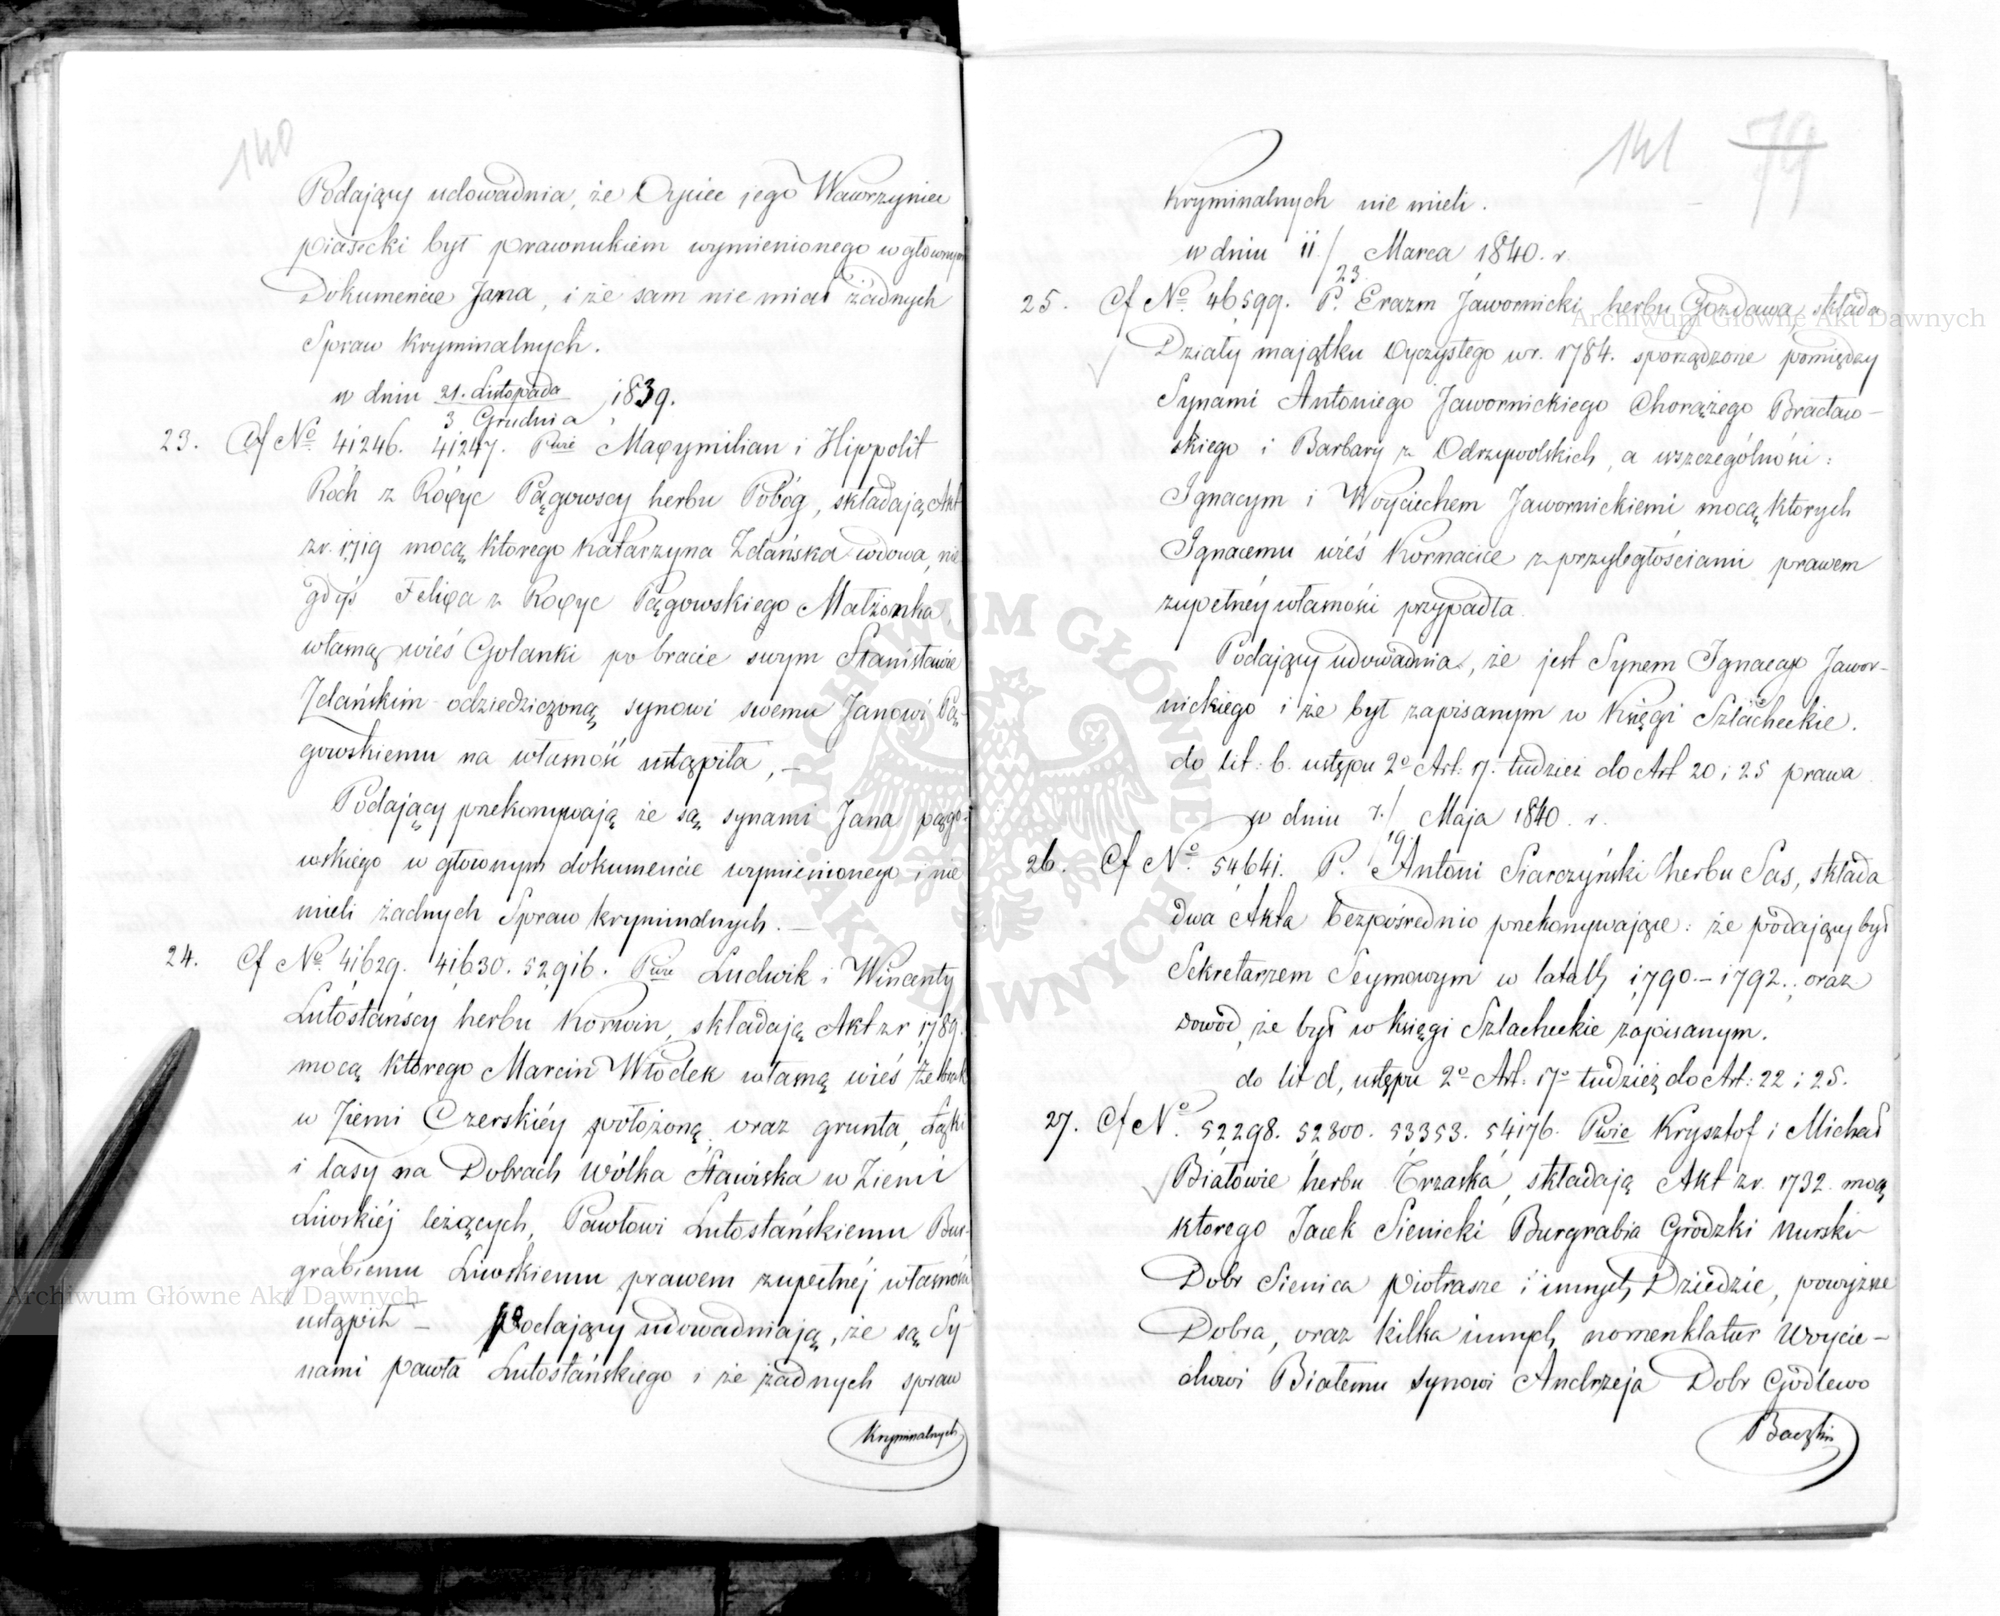 140
Podający udowadnia, że Oyciec jego Wawrzyniec
piasecki był prawnukiem wymienionego w głównym
Dokumencie Jana, i że sam nie miał żadnych
Spraw Kryminalnych.
w dniu 21. Listopada / 3 Grudnia 1839.
23. Cf No 41246. 41247. Pwie Maxymilian i Hippolit
Roch z Roxyc Pągowscy herbu Pobóg, składają Akt
z r. 1719 mocą którego Katarzyna Zdańska wdowa, nie
gdyś Felixa z Roxyc Pągowskiego Małżonka,
własną wieś Golanki po bracie swym Stanisławie
Zdańskim odziedziczoną, synowi swemu Janowi Pą-
gowskiemu na własność ustąpiła, –
Podający przekonywają że są synami Jana pągo-
wskiego w głównym dokumencie wymienionego i nie
mieli żadnych Spraw kryminalnych. –
24. Cf No 41629. 41630. 52916. Pwie Ludwik i Wincenty
Lutostańscy herbu Korwin, składają Akt z r 1789.
mocą którego Marcin Włodek własną wieś
w Ziemi Czerskiéy położoną, oraz grunta, Łąki
i lasy na Dobrach Wólka Stawiska w Ziemi
Liwskiéj leżących, Pawłowi Lutostańskiemu Bur-
grabiemu Liwskiemu prawem zupełnéj własności
ustąpił – Podający udowadniają, że są Sy-
nami pawła Lutostańskiego i że żadnych spraw
Kryminalnych
141 79
Kryminalnych nie mieli.
w dniu 11/23 Marca 1840. r.
25. Cf No 46599. P. Erazm Jawornicki herbu Gozdawa, składa
Działy majątku Oyczystego w r. 1784. sporządzone pomiędzy
Synami Antoniego Jawornickiego Chorążego Bracław-
skiego i Barbary z Odrzywolskich, a wszczególności:
Ignacym i Woyciechem Jawornickiemi mocą których
Ignacemu wieś Kornacice z przyległościami prawem
zupełnéy własności przypadła.
Podający udowadnia, że jest Synem Ignacego Jawor-
nickiego i że był zapisanym w Księgi Szlacheckie.
do lit: b. ustępu 2o Art: 17. tudzież do Art 20 i 25 prawa
w dniu 7/19 Maja 1840. r.
26. Cf No 54641. P. Antoni Siarczyński herbu Sas, składa
dwa Akta bezpośrednio przekonywające: że podający był
Sekretarzem Seymowym w latach 1790.–1792., oraz
dowód, że był w księgi Szlacheckie zapisanym.
do lit d, ustępu 2o Art: 17o tudzież do Art: 22 i 25.
27. Cf No 52298. 52300. 53353. 54176. Pwie Krysztof i Michał
Białowie herbu Trzaska, składają Akt z r. 1732. mocą
którego Jacek Sienicki Burgrabia Grodzki Nurski
Dobr Sienica Piotrasze i innych Dziedzic, powyższe
Dobra, oraz kilka innych nomenklatur Woycie-
chowi Białemu synowi Andrzeja Dobr Godlewo
Baczki
Archiwum Główne Akt Dawnych
Archiwum Główne Akt Dawnych
ARCHIWUM GŁÓWNE AKT DAWNYCH